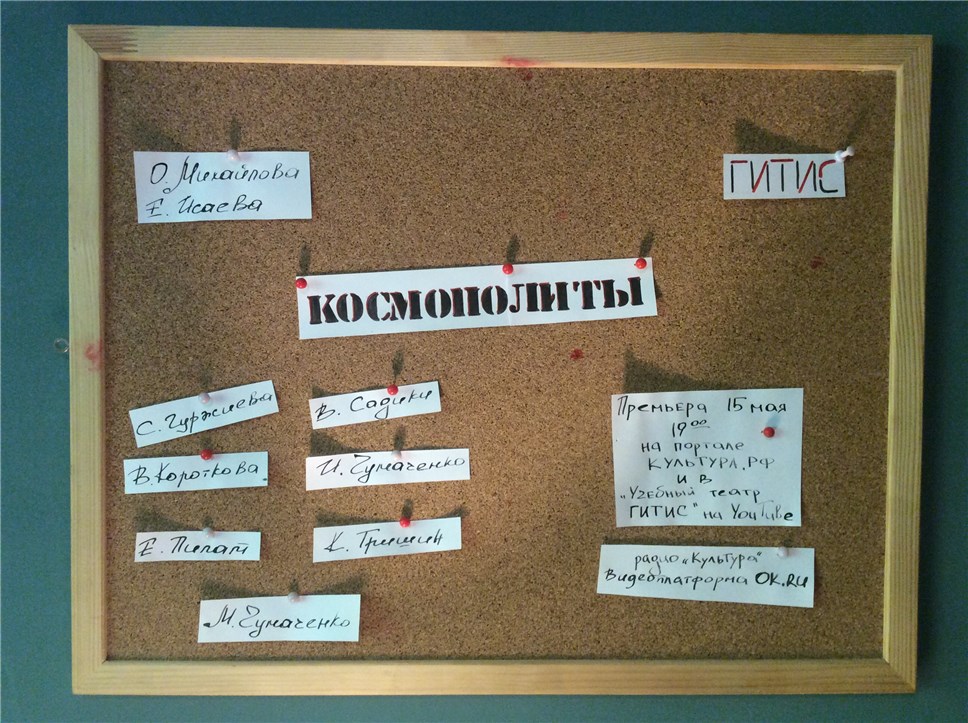 О. Михайлова
Е. Исаева
ГИТИС
КОСМОПОЛИТЫ
С. Гуржиева
В. Садики
В. Короткова
И. Чумаченко
Е. Пилат
К. Гришин
М. Чумаченко
Премьера 15 мая
19⁰⁰
на портале
КУЛЬТУРА.РФ
И В
„Учебный театр
ГИТИС" на YouTube
радио „Культура"
Видеоплатформа OK.RU